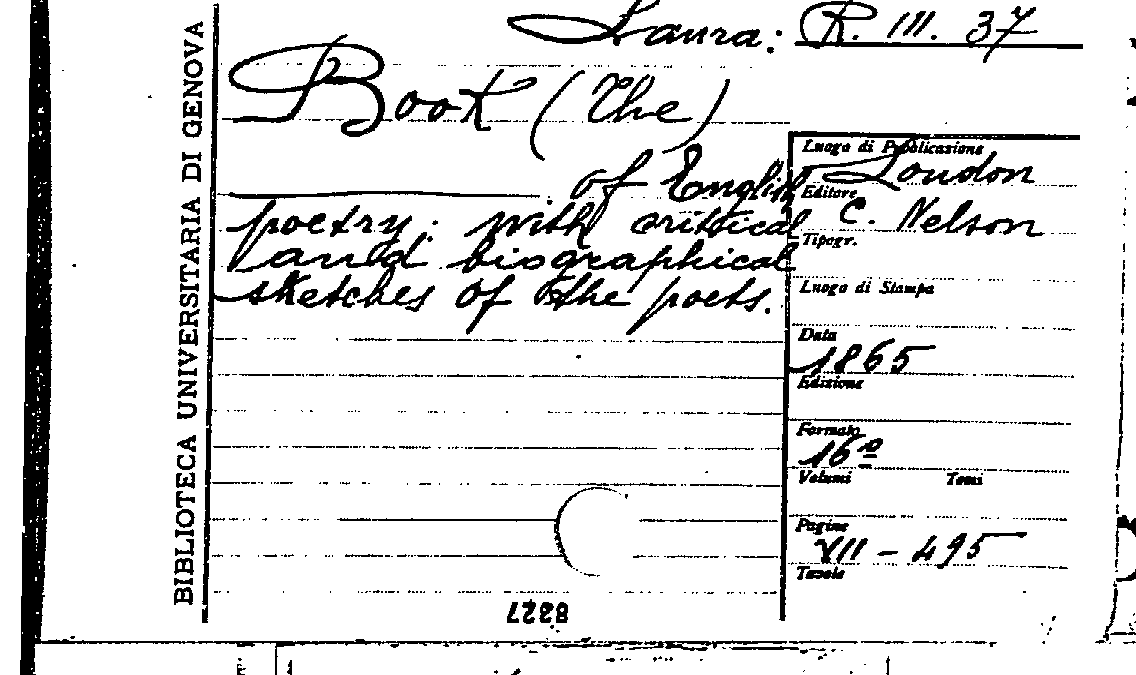 Laura: R. III. 37
BIBLIOTECA UNIVERSITARIA DI GENOVA
Book (The)
of English
poetry: with critical
and biographical
sketches of the poets.
Luogo di Pubblicazione
London
Editore
C. Nelson
Tipogr.
Luogo di Stampa
Data
1865
Edizione
Formato
16º
Volumi Tomi
Pagine
VII - 495
Tavole
8227